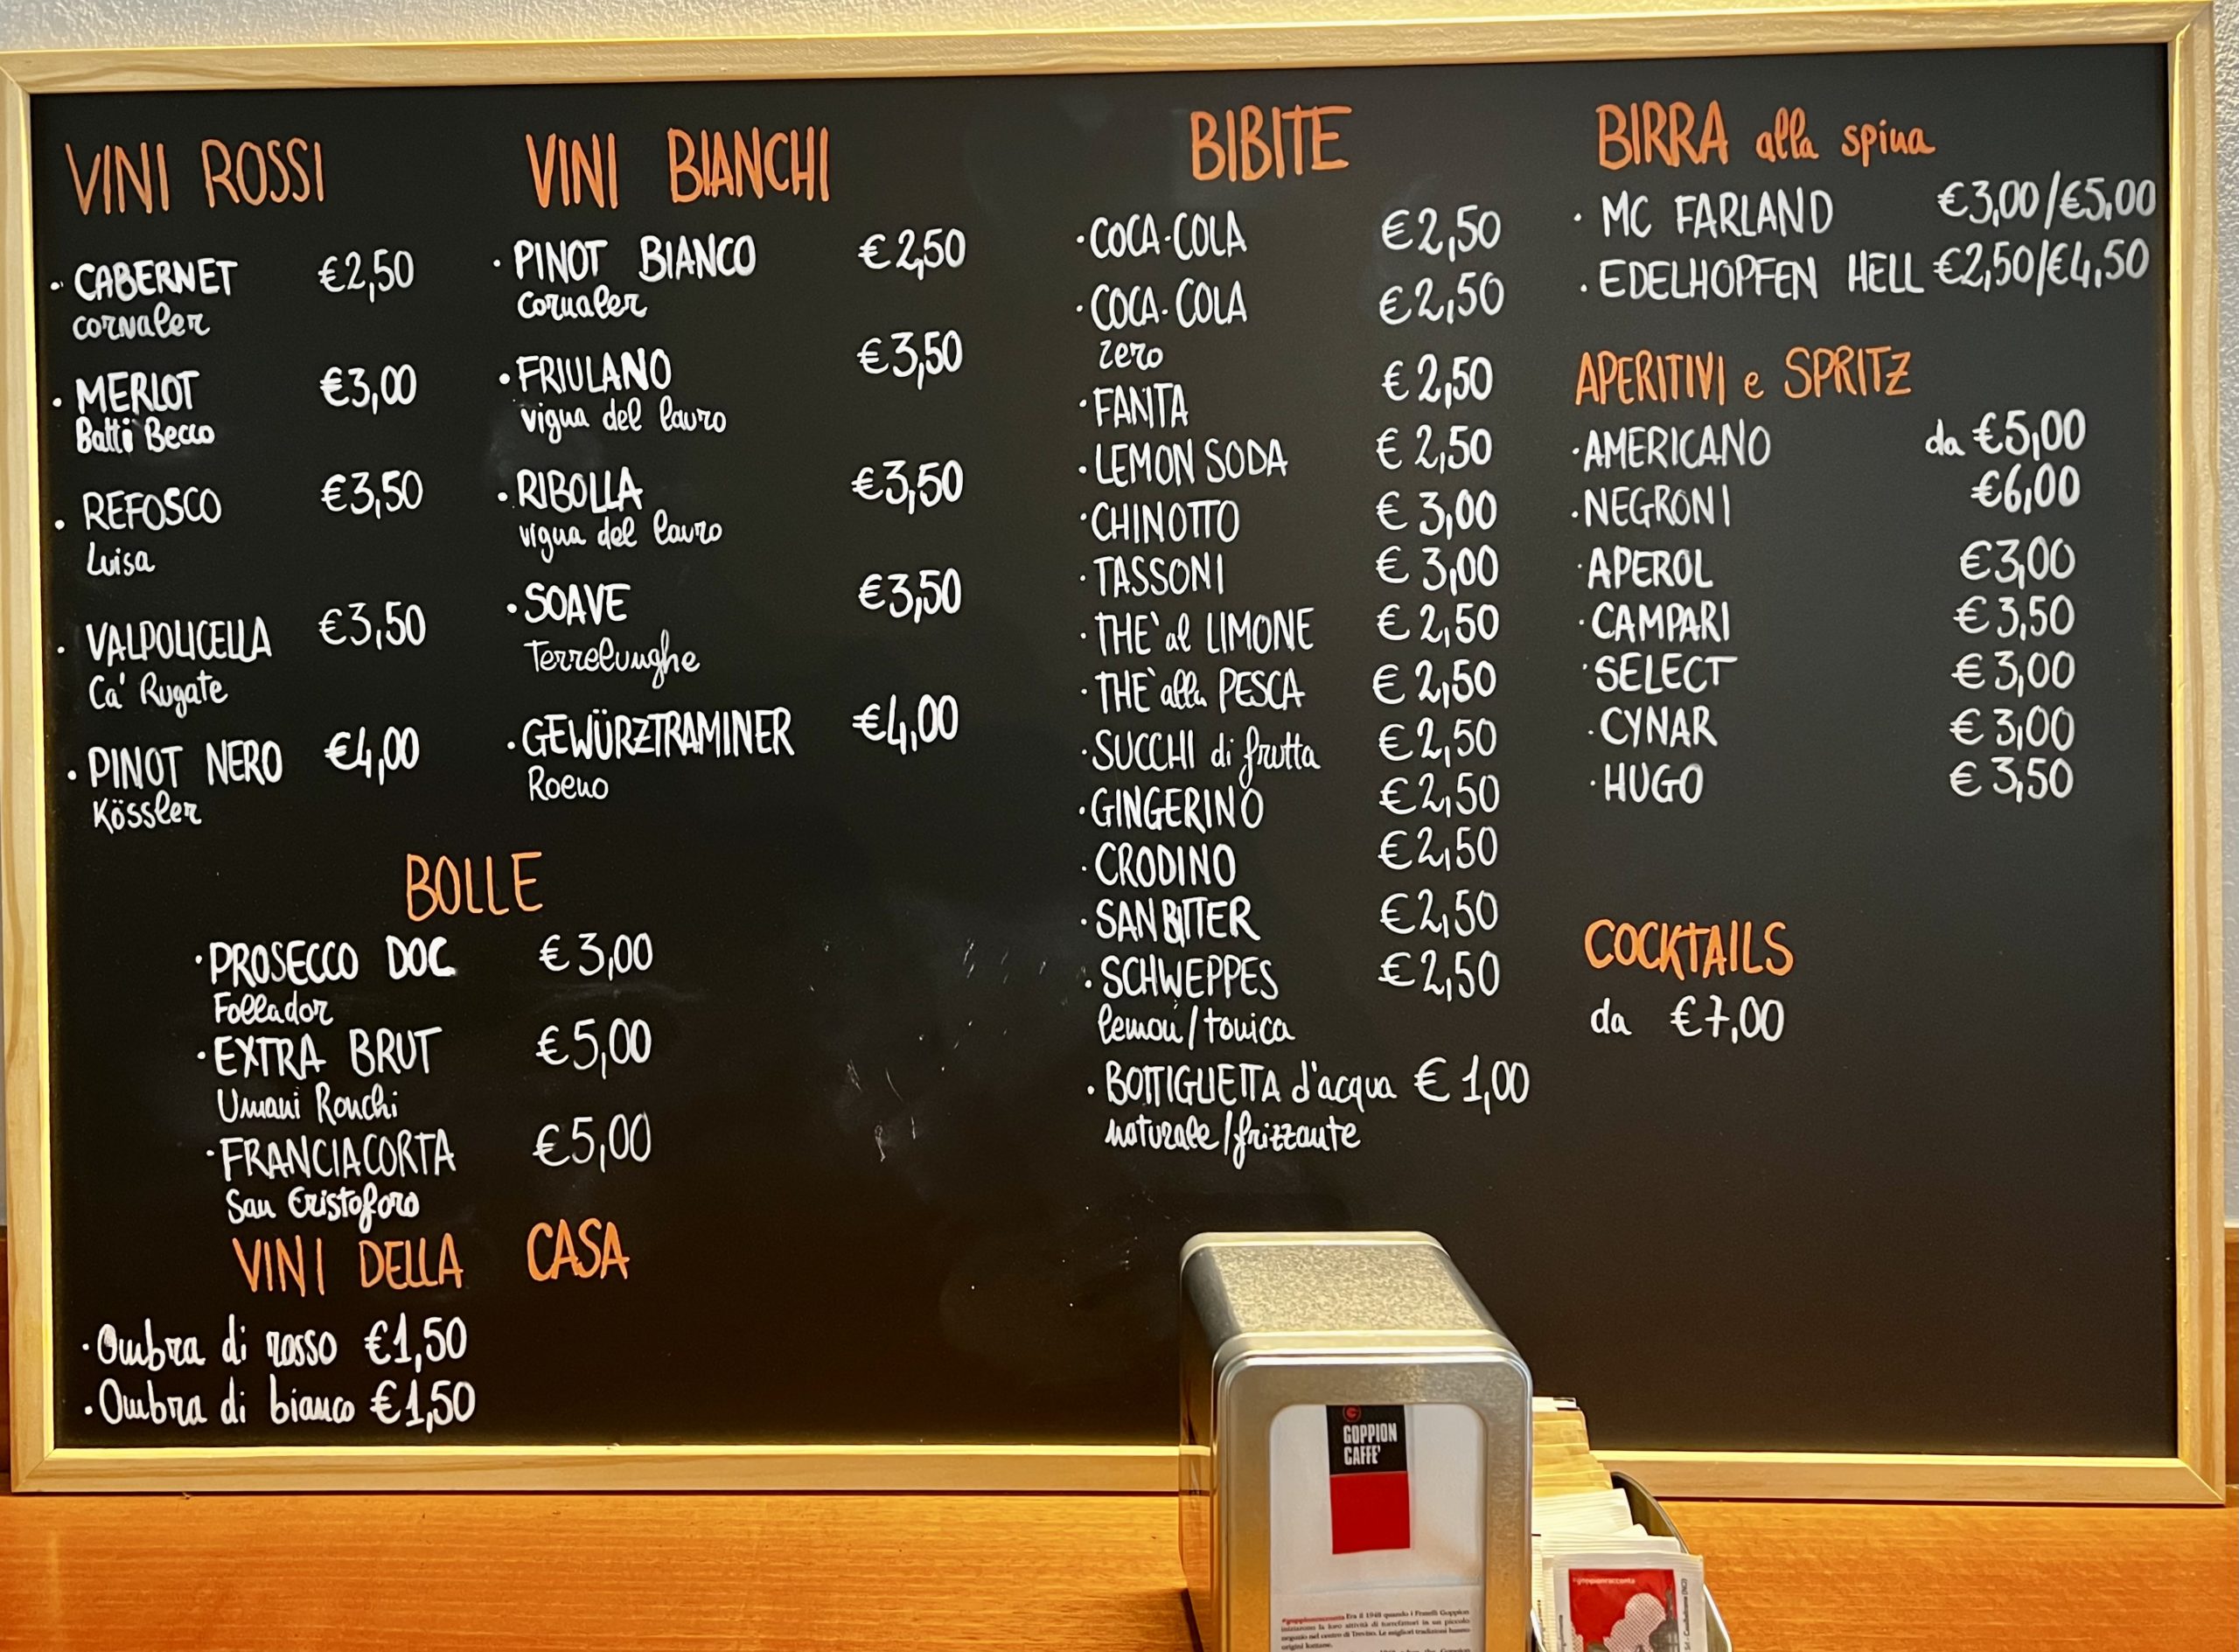 VINI ROSSI
· CABERNET €2,50
cornaler
· MERLOT €3,00
Batti Becco
· REFOSCO €3,50
Luisa
· VALPOLICELLA €3,50
Ca' Rugate
· PINOT NERO €4,00
Kössler
VINI BIANCHI
· PINOT BIANCO €2,50
cornaler
· FRIULANO €3,50
vigna del lauro
· RIBOLLA €3,50
vigna del lauro
· SOAVE €3,50
Terrelunghe
· GEWÜRZTRAMINER €4,00
Roeno
BOLLE
· PROSECCO DOC €3,00
Follador
· EXTRA BRUT €5,00
Umani Ronchi
· FRANCIACORTA €5,00
San Cristoforo
VINI DELLA CASA
· Ombra di rosso €1,50
· Ombra di bianco €1,50
BIBITE
· COCA-COLA €2,50
· COCA-COLA €2,50
zero
· FANTA €2,50
· LEMON SODA €2,50
· CHINOTTO €3,00
· TASSONI €3,00
· THE' al LIMONE €2,50
· THE' alla PESCA €2,50
· SUCCHI di frutta €2,50
· GINGERINO €2,50
· CRODINO €2,50
· SANBITTER €2,50
· SCHWEPPES €2,50
lemon/tonica
· BOTTIGLIETTA d'acqua €1,00
naturale/frizzante
BIRRA alla spina
· MC FARLAND €3,00/€5,00
· EDELHOPFEN HELL €2,50/€4,50
APERITIVI e SPRITZ
· AMERICANO da €5,00
· NEGRONI €6,00
· APEROL €3,00
· CAMPARI €3,50
· SELECT €3,00
· CYNAR €3,00
· HUGO €3,50
COCKTAILS
da €7,00
GOPPION
CAFFE'
#goppionracconta Era il 1948 quando i Fratelli Goppion
iniziarono la loro attività di torrefattori in un piccolo
negozio nel centro di Treviso. Le migliori tradizioni hanno
origini lontane.
#goppionracconta